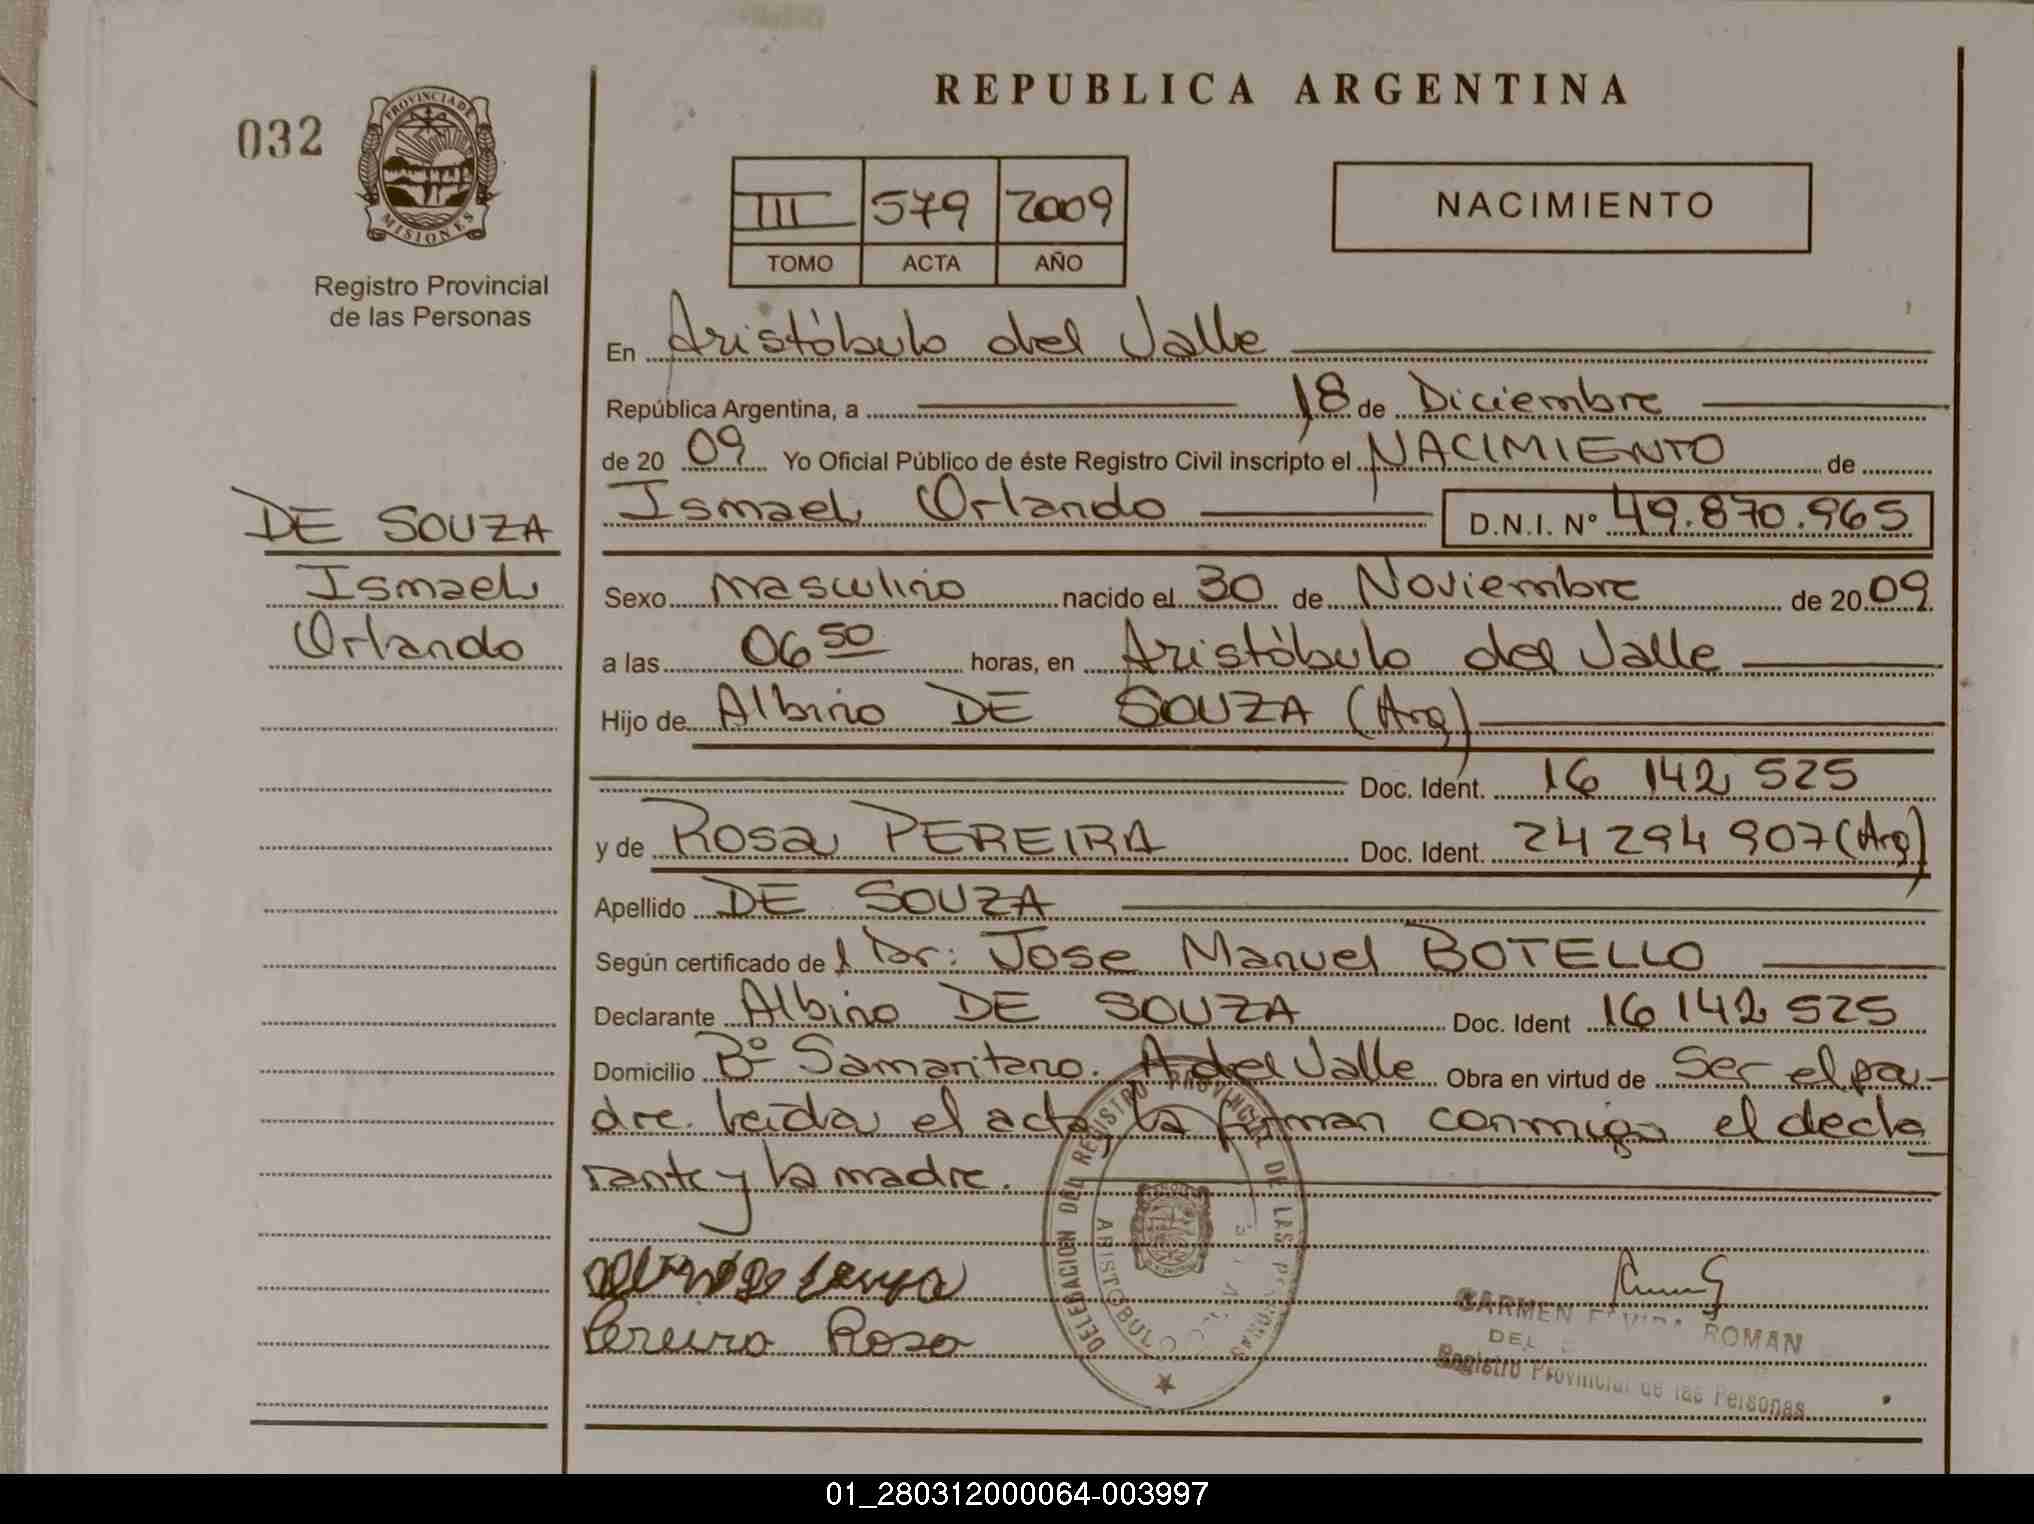 REPUBLICA ARGENTINA
032
PROVINCIA DE
MISIONES
Registro Provincial
de las Personas
III 579 2009
TOMO ACTA AÑO
NACIMIENTO
En Aristóbulo del Valle
República Argentina, a 18 de Diciembre
de 20 09 Yo Oficial Público de éste Registro Civil inscripto el NACIMIENTO de
Ismael Orlando D.N.I. Nº 49.870.965
DE SOUZA
Ismael
Orlando
Sexo masculino nacido el 30 de Noviembre de 20 09
a las 06 50 horas, en Aristóbulo del Valle
Hijo de Albino DE SOUZA (Arg)
Doc. Ident. 16 142 525
y de Rosa PEREIRA Doc. Ident. 24 294 907 (Arg)
Apellido DE SOUZA
Según certificado del Dr: Jose Manuel BOTELLO
Declarante Albino DE SOUZA Doc. Ident 16 142 525
Domicilio Bº Samaritano. A. del Valle Obra en virtud de ser el pa-
dre. leida el acta, la firman conmigo el decla
rante y la madre.
DELEGACION DEL REGISTRO PROVINCIAL DE LAS PERSONAS
ARISTOBULO
Pereira Rosa
CARMEN ROMAN
DEL
Registro Provincial de las Personas
01_280312000064-003997